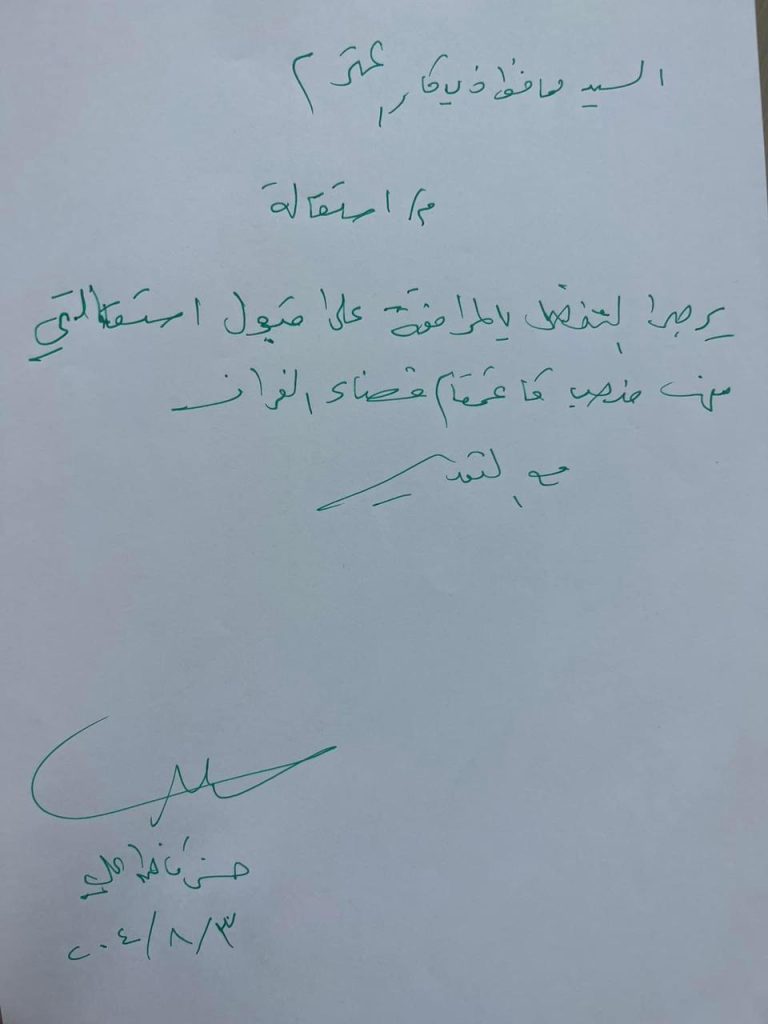 السيد محافظ ذي قار المحترم
م/ استقالة
يرجى التفضل بالموافقة على قبول استقالتي
من منصب قائممقام قضاء الغراف
مع التقدير
حسن
٣/٨/٢٠٤